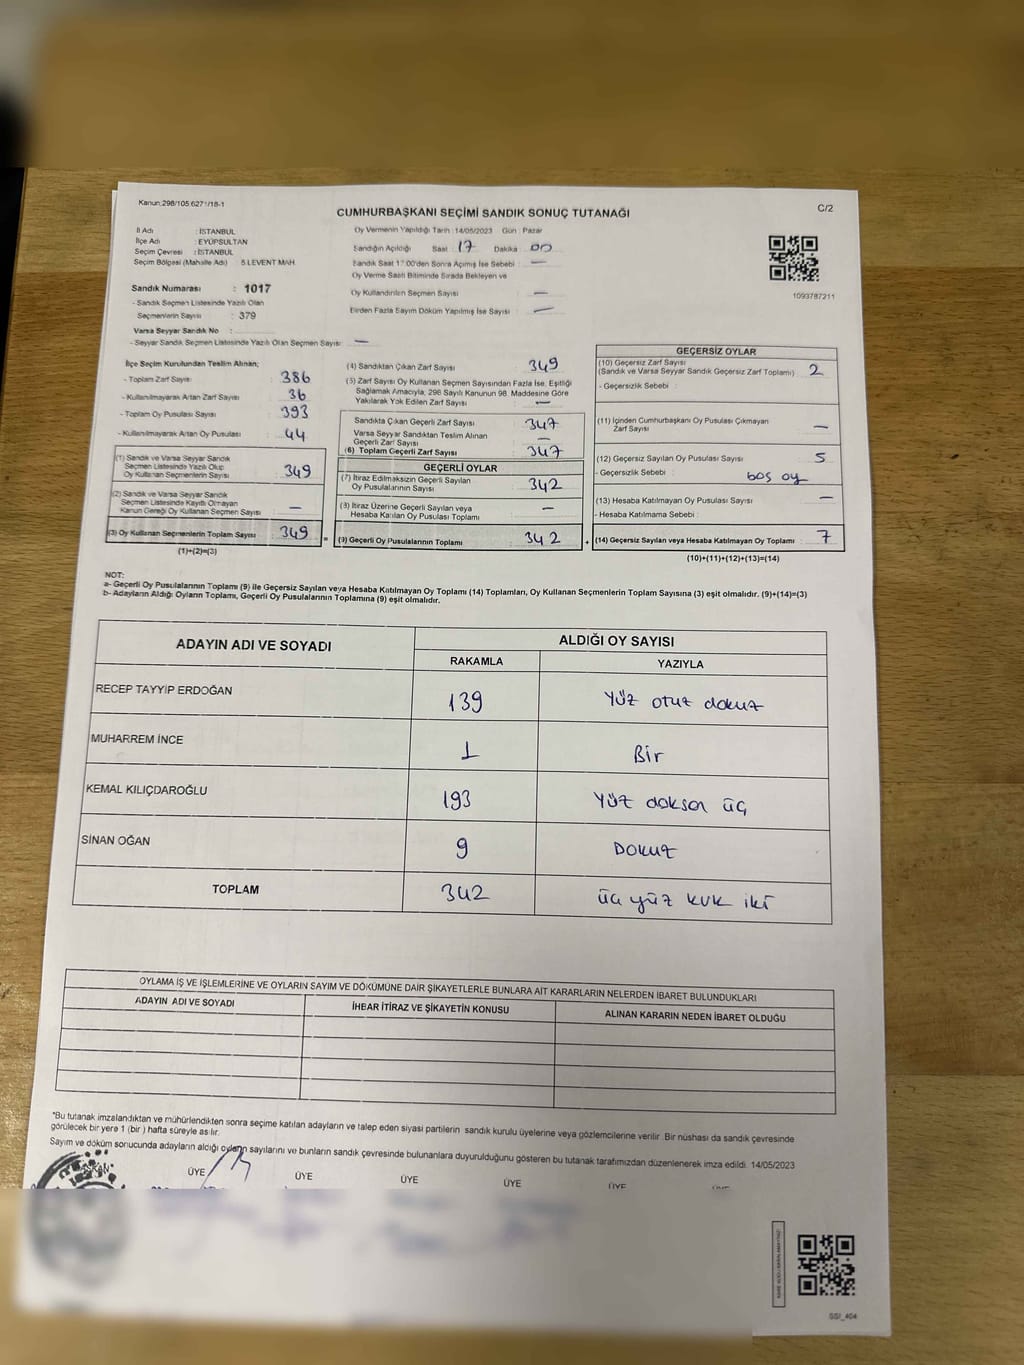 Kanun:298/105.6271/18-1
CUMHURBAŞKANI SEÇİMİ SANDIK SONUÇ TUTANAĞI
C/2
İl Adı : İSTANBUL
İlçe Adı : EYÜPSULTAN
Seçim Çevresi : İSTANBUL
Seçim Bölgesi (Mahalle Adı) 5.LEVENT MAH.
Sandık Numarası : 1017
- Sandık Seçmen Listesinde Yazılı Olan
Seçmenlerin Sayısı : 379
Varsa Seyyar Sandık No :
- Seyyar Sandık Seçmen Listesinde Yazılı Olan Seçmen Sayısı : —
Oy Vermenin Yapıldığı Tarih :14/05/2023 Gün : Pazar
Sandığın Açıldığı Saat : 17 Dakika : 00
Sandık Saat 17:00'den Sonra Açımış İse Sebebi : —
Oy Verme Saati Bitiminde Sırada Bekleyen ve
Oy Kullandırılan Seçmen Sayısı : —
Birden Fazla Sayım Döküm Yapılmış İse Sayısı : —
1093787211
İlçe Seçim Kurulundan Teslim Alınan;
- Toplam Zarf Sayısı : 386
- Kullanılmayarak Artan Zarf Sayısı : 36
- Toplam Oy Pusulası Sayısı : 393
- Kullanılmayarak Artan Oy Pusulası : 44
(1) Sandık ve Varsa Seyyar Sandık
Seçmen Listesinde Yazılı Olup
Oy Kullanan Seçmenlerin Sayısı : 349
(2) Sandık ve Varsa Seyyar Sandık
Seçmen Listesinde Kayıtlı Olmayan
Kanun Gereği Oy Kullanan Seçmen Sayısı : —
(3) Oy Kullanan Seçmenlerin Toplam Sayısı : 349
(1)+(2)=(3)
(4) Sandıktan Çıkan Zarf Sayısı : 349
(5) Zarf Sayısı Oy Kullanan Seçmen Sayısından Fazla İse, Eşitliği
Sağlamak Amacıyla, 298 Sayılı Kanunun 98. Maddesine Göre
Yakılarak Yok Edilen Zarf Sayısı : —
Sandıkta Çıkan Geçerli Zarf Sayısı : 347
Varsa Seyyar Sandıktan Teslim Alınan
Geçerli Zarf Sayısı : —
(6) Toplam Geçerli Zarf Sayısı : 347
GEÇERLİ OYLAR
(7) İtiraz Edilmaksizin Geçerli Sayılan
Oy Pusulalarının Sayısı : 342
(8) İtiraz Üzerine Geçerli Sayılan veya
Hesaba Katılan Oy Pusulası Toplamı : —
= (9) Geçerli Oy Pusulalarının Toplamı : 342
GEÇERSİZ OYLAR
(10) Geçersiz Zarf Sayısı
(Sandık ve Varsa Seyyar Sandık Geçersiz Zarf Toplamı) : 2
- Geçersizlik Sebebi :
(11) İçinden Cumhurbaşkanı Oy Pusulası Çıkmayan
Zarf Sayısı : —
(12) Geçersiz Sayılan Oy Pusulası Sayısı : 5
- Geçersizlik Sebebi : boş oy
(13) Hesaba Katılmayan Oy Pusulası Sayısı : —
- Hesaba Katılmama Sebebi :
+ (14) Geçersiz Sayılan veya Hesaba Katılmayan Oy Toplamı : 7
(10)+(11)+(12)+(13)=(14)
NOT:
a- Geçerli Oy Pusulalarının Toplamı (9) ile Geçersiz Sayılan veya Hesaba Katılmayan Oy Toplamı (14) Toplamları, Oy Kullanan Seçmenlerin Toplam Sayısına (3) eşit olmalıdır. (9)+(14)=(3)
b- Adayların Aldığı Oyların Toplamı, Geçerli Oy Pusulalarının Toplamına (9) eşit olmalıdır.
ADAYIN ADI VE SOYADI
ALDIĞI OY SAYISI
RAKAMLA YAZIYLA
RECEP TAYYİP ERDOĞAN 139 Yüz otuz dokuz
MUHARREM İNCE 1 Bir
KEMAL KILIÇDAROĞLU 193 Yüz doksan üç
SİNAN OĞAN 9 Dokuz
TOPLAM 342 üç yüz kırk iki
OYLAMA İŞ VE İŞLEMLERİNE VE OYLARIN SAYIM VE DÖKÜMÜNE DAİR ŞİKAYETLERLE BUNLARA AİT KARARLARIN NELERDEN İBARET BULUNDUKLARI
ADAYIN ADI VE SOYADI İHBAR İTİRAZ VE ŞİKAYETİN KONUSU ALINAN KARARIN NEDEN İBARET OLDUĞU
*Bu tutanak imzalandıktan ve mühürlendikten sonra seçime katılan adayların ve talep eden siyasi partilerin sandık kurulu üyelerine veya gözlemcilerine verilir. Bir nüshası da sandık çevresinde
görülecek bir yere 1 (bir ) hafta süreyle asılır.
Sayım ve döküm sonucunda adayların aldığı oyların sayılarını ve bunların sandık çevresinde bulunanlara duyurulduğunu gösteren bu tutanak tarafımızdan düzenlenerek imza edildi. 14/05/2023
BAŞKAN ÜYE ÜYE ÜYE ÜYE ÜYE
SSI_404